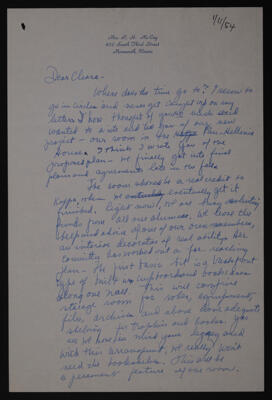 1/11/54
Mrs. R. H. McCoy
402 South Third Street
Monmouth, Illinois
Dear Cleora -
Where does the time go to? I seem to
go in circles and never get caught up on my
letters. I have thought of you and
wanted to write and tell you of our new
project - our room in the Pan-Hellenic
House. I think I wrote you of our
proposed plan - we finally got into final
plans and agreements late in the fall.
The room should be a real credit to
Kappa, when we eventually get it
finished. Right now, we are busy soliciting
funds from all our alumnae. We have the
help and advice of one of our own members,
an interior decorator of real ability. Her
committee has worked out a far reaching
plan - He just have built in a
type of built in cupboards and bookcases
along one wall. This will comprise
storage room for robes, equipment,
files, archives and above some adequate
shelving for trophies and books. You
see we have in mind your legacy and
with this arrangement, we really won't
need the bookshelves. This will be
a permanent feature of our room.